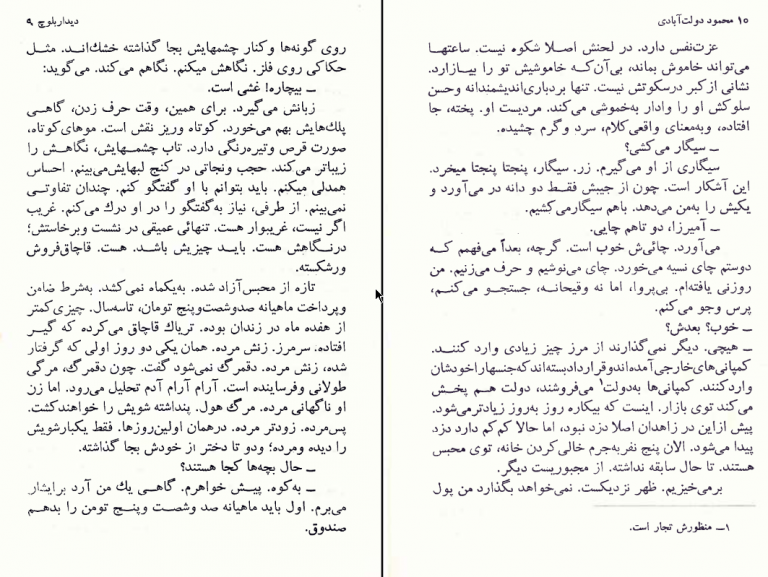 دیداربلوچ ۹
روی گونه‌ها وکنار چشمهایش بجا گذاشته خشك‌انـد. مثـل
حکاکی روی فلز. نگاهش میکنم. نگاهم می‌کند. می‌گوید:
ــ بیچاره! غشی است.
زبانش می‌گیرد. برای همین، وقت حرف زدن، گاهـی
پلك‌هایش بهم می‌خورد. کوتاه وریز نقش است. موهای‌کوتاه،
صورت قرص وتیره‌رنگی دارد. تاپ چشمـهایش، نگاهـش را
زیباتر می‌کند. حجب ونجاتی در کنج لبهایش‌می‌بینم. احساس
همدلی میکنم. باید بتوانم با او گفتگو کنم. چندان تفاوتـی
نمی‌بینم. از طرفی، نیاز به‌گفتگو را در او درك می‌کنم. غریب
اگر نیست، غریبوار هست. تنهائی عمیقی در نشست وبرخاستش؛
درنـگاهش هست. بایـد چیزیش باشـد. هست. قاچاق‌فروش
ورشکسته.
تازه از محبس‌آزاد شده. به‌یکماه نمی‌کشد. به‌شرط ضامن
وپرداخت ماهیانه صدوشصت‌وپنج تومان، تاسه‌سال. چیزی‌کمتر
از هفده ماه در زندان بوده. تریاك قاچاق می‌کرده که گیـر
افتاده. سرمرز. زنش مرده. همان یکی دو روز اولی که گرفتار
شده، زنش مرده. دقمرگ نمی‌شود گفت. چون دقمرگ، مرگی
طولانی وفرساینده است. آرام آرام آدم تحلیل می‌رود. اما زن
او ناگهانی مرده. مرگ هول. پنداشته شویش را خواهندکشت.
پس‌مرده. زودتر مرده. درهمان اولین‌روزها. فقط یکبارشویش
را دیده ومرده؛ ودو تا دختر از خودش بجا گذاشته.
ــ حال بچه‌ها کجا هستند؟
ــ به‌کوه. پیـش خواهرم. گاهـی یك من آرد برایشان
می‌برم. اول باید ماهیانه صد وشصت وپنـج تومن را بدهـم
صندوق.
۱۰ محمود دولت‌آبادی
عزت‌نفس دارد. در لحنش اصـلا شکوه نیست. ساعتهـا
می‌تواند خاموش بماند، بی‌آن‌کـه خاموشیش تو را بیـازارد.
نشانی ازکبر درسکوتش نیست. تنها بردباری‌اندیشمندانه وحسن
سلوکش او را وادار به‌خموشی می‌کند. مردیست او. پخته، جا
افتاده، وبه‌معنای واقعی‌کلام، سرد و گرم چشیده.
ــ سیگار می‌کشی؟
سیگاری از او می‌گیرم. زر. سیگار، پنجتا پنجتا میخرد.
این آشکار است. چون از جیبش فقـط دو دانه در می‌آورد و
یکیش را به‌من می‌دهد. باهم سیگارمی‌کشیم.
ــ آمیرزا، دو تاهم چایی.
می‌آورد. چائی‌ش خوب است. گرچه، بعداً می‌فهمم کـه
دوستم چای نسیه می‌خورد. چای می‌نوشیم و حرف می‌زنیم. من
روزنی یافته‌ام. بی‌پروا، اما نه وقیحانـه، جستجـو می‌کنـم،
پرس وجو می‌کنم.
ــ خوب؟ بعدش؟
ــ هیچی. دیگر نمی‌گذارند از مرز چیز زیادی وارد کننـد.
کمپانی‌های‌خارجی‌آمده‌اندوقراردادبسته‌اندکه‌جنسهاراخودشان
واردکنند. کمپانی‌ها به‌دولت۱ می‌فروشند، دولت هـم پخـش
می‌کند توی بازار. اینست که بیکاره روز به‌روز زیادتر‌می‌شود.
پیش ازاین در زاهدان اصلا دزد نبود، اما حالا کم‌کم دارد دزد
پیدا می‌شود. الان پنج نفربه‌جرم خالی‌کردن خانه، توی محبس
هستند. تا حال سابقه نداشته. از مجبوریست دیگر.
برمی‌خیزیم. ظهر نزدیکست. نمی‌خواهد بگذارد من پول
۱ــ منظورش تجار است.